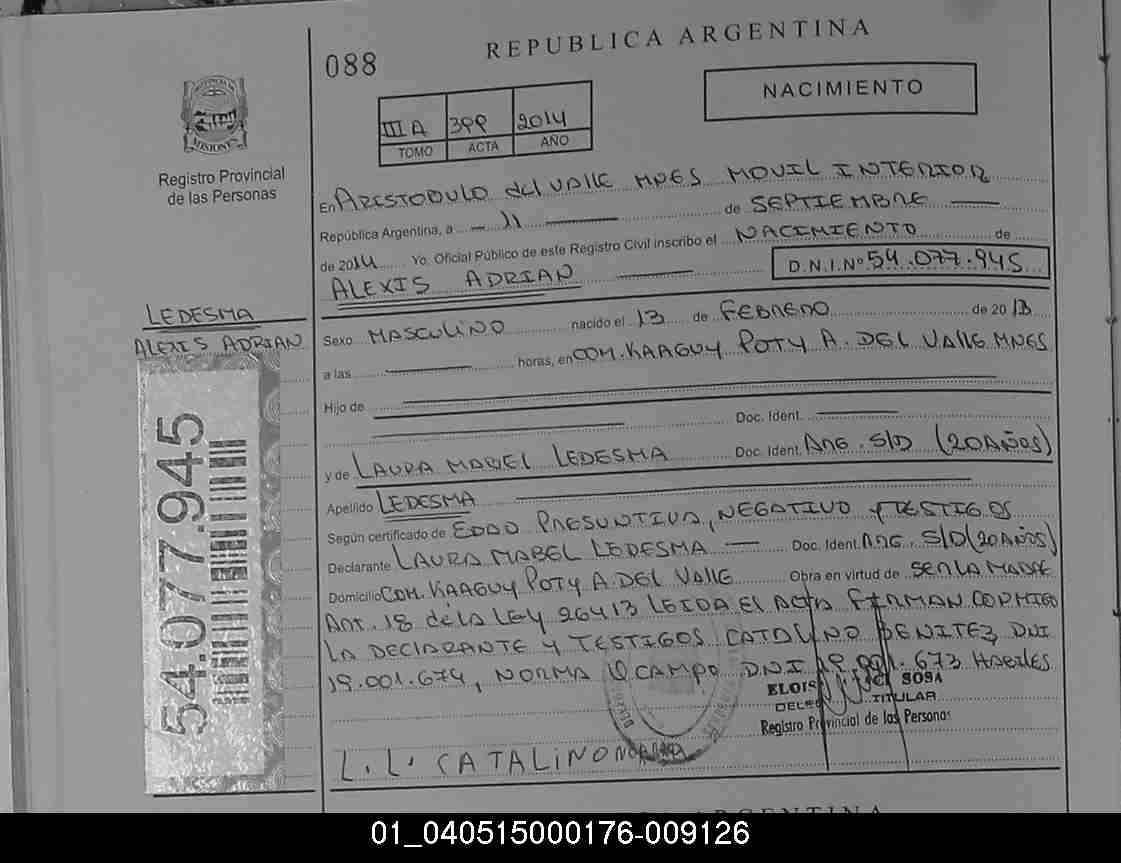 088
REPUBLICA ARGENTINA
NACIMIENTO
PROVINCIA DE MISIONES
Registro Provincial
de las Personas
III A 399 2014
TOMO ACTA AÑO
En ARISTOBULO del VALLE MNES MOVIL INTERIOR
República Argentina, a 11 de SEPTIEMBRE
de 2014 Yo. Oficial Público de este Registro Civil inscribo el NACIMIENTO de
ALEXIS ADRIAN D.N.I.Nº 54.077.945
LEDESMA
ALEXIS ADRIAN
54.077.945
Sexo MASCULINO nacido el 13 de FEBRERO de 2013
a las horas, en COM. KAAGUY POTY A. DEL VALLE MNES
Hijo de
Doc. Ident.
y de LAURA MABEL LEDESMA Doc. Ident. ARG. S/D (20 AÑOS)
Apellido LEDESMA
Según certificado de EDAD PRESUNTIVA, NEGATIVO Y TESTIGOS
Declarante LAURA MABEL LEDESMA Doc. Ident. ARG S/D (20 AÑOS)
Domicilio COM. KAAGUY POTY A. DEL VALLE Obra en virtud de SER LA MADRE
ART. 18 de la LEY 26413 LEIDA EL ACTA FIRMAN CONMIGO
LA DECLARANTE Y TESTIGOS CATALINO BENITEZ DNI
19.001.674, NORMA OCAMPO DNI 19.001.673 HABILES
SOSA
TITULAR
Registro Provincial de las Personas
L. L. CATALINO NORMA
REPUBLICA ARGENTINA
01_040515000176-009126